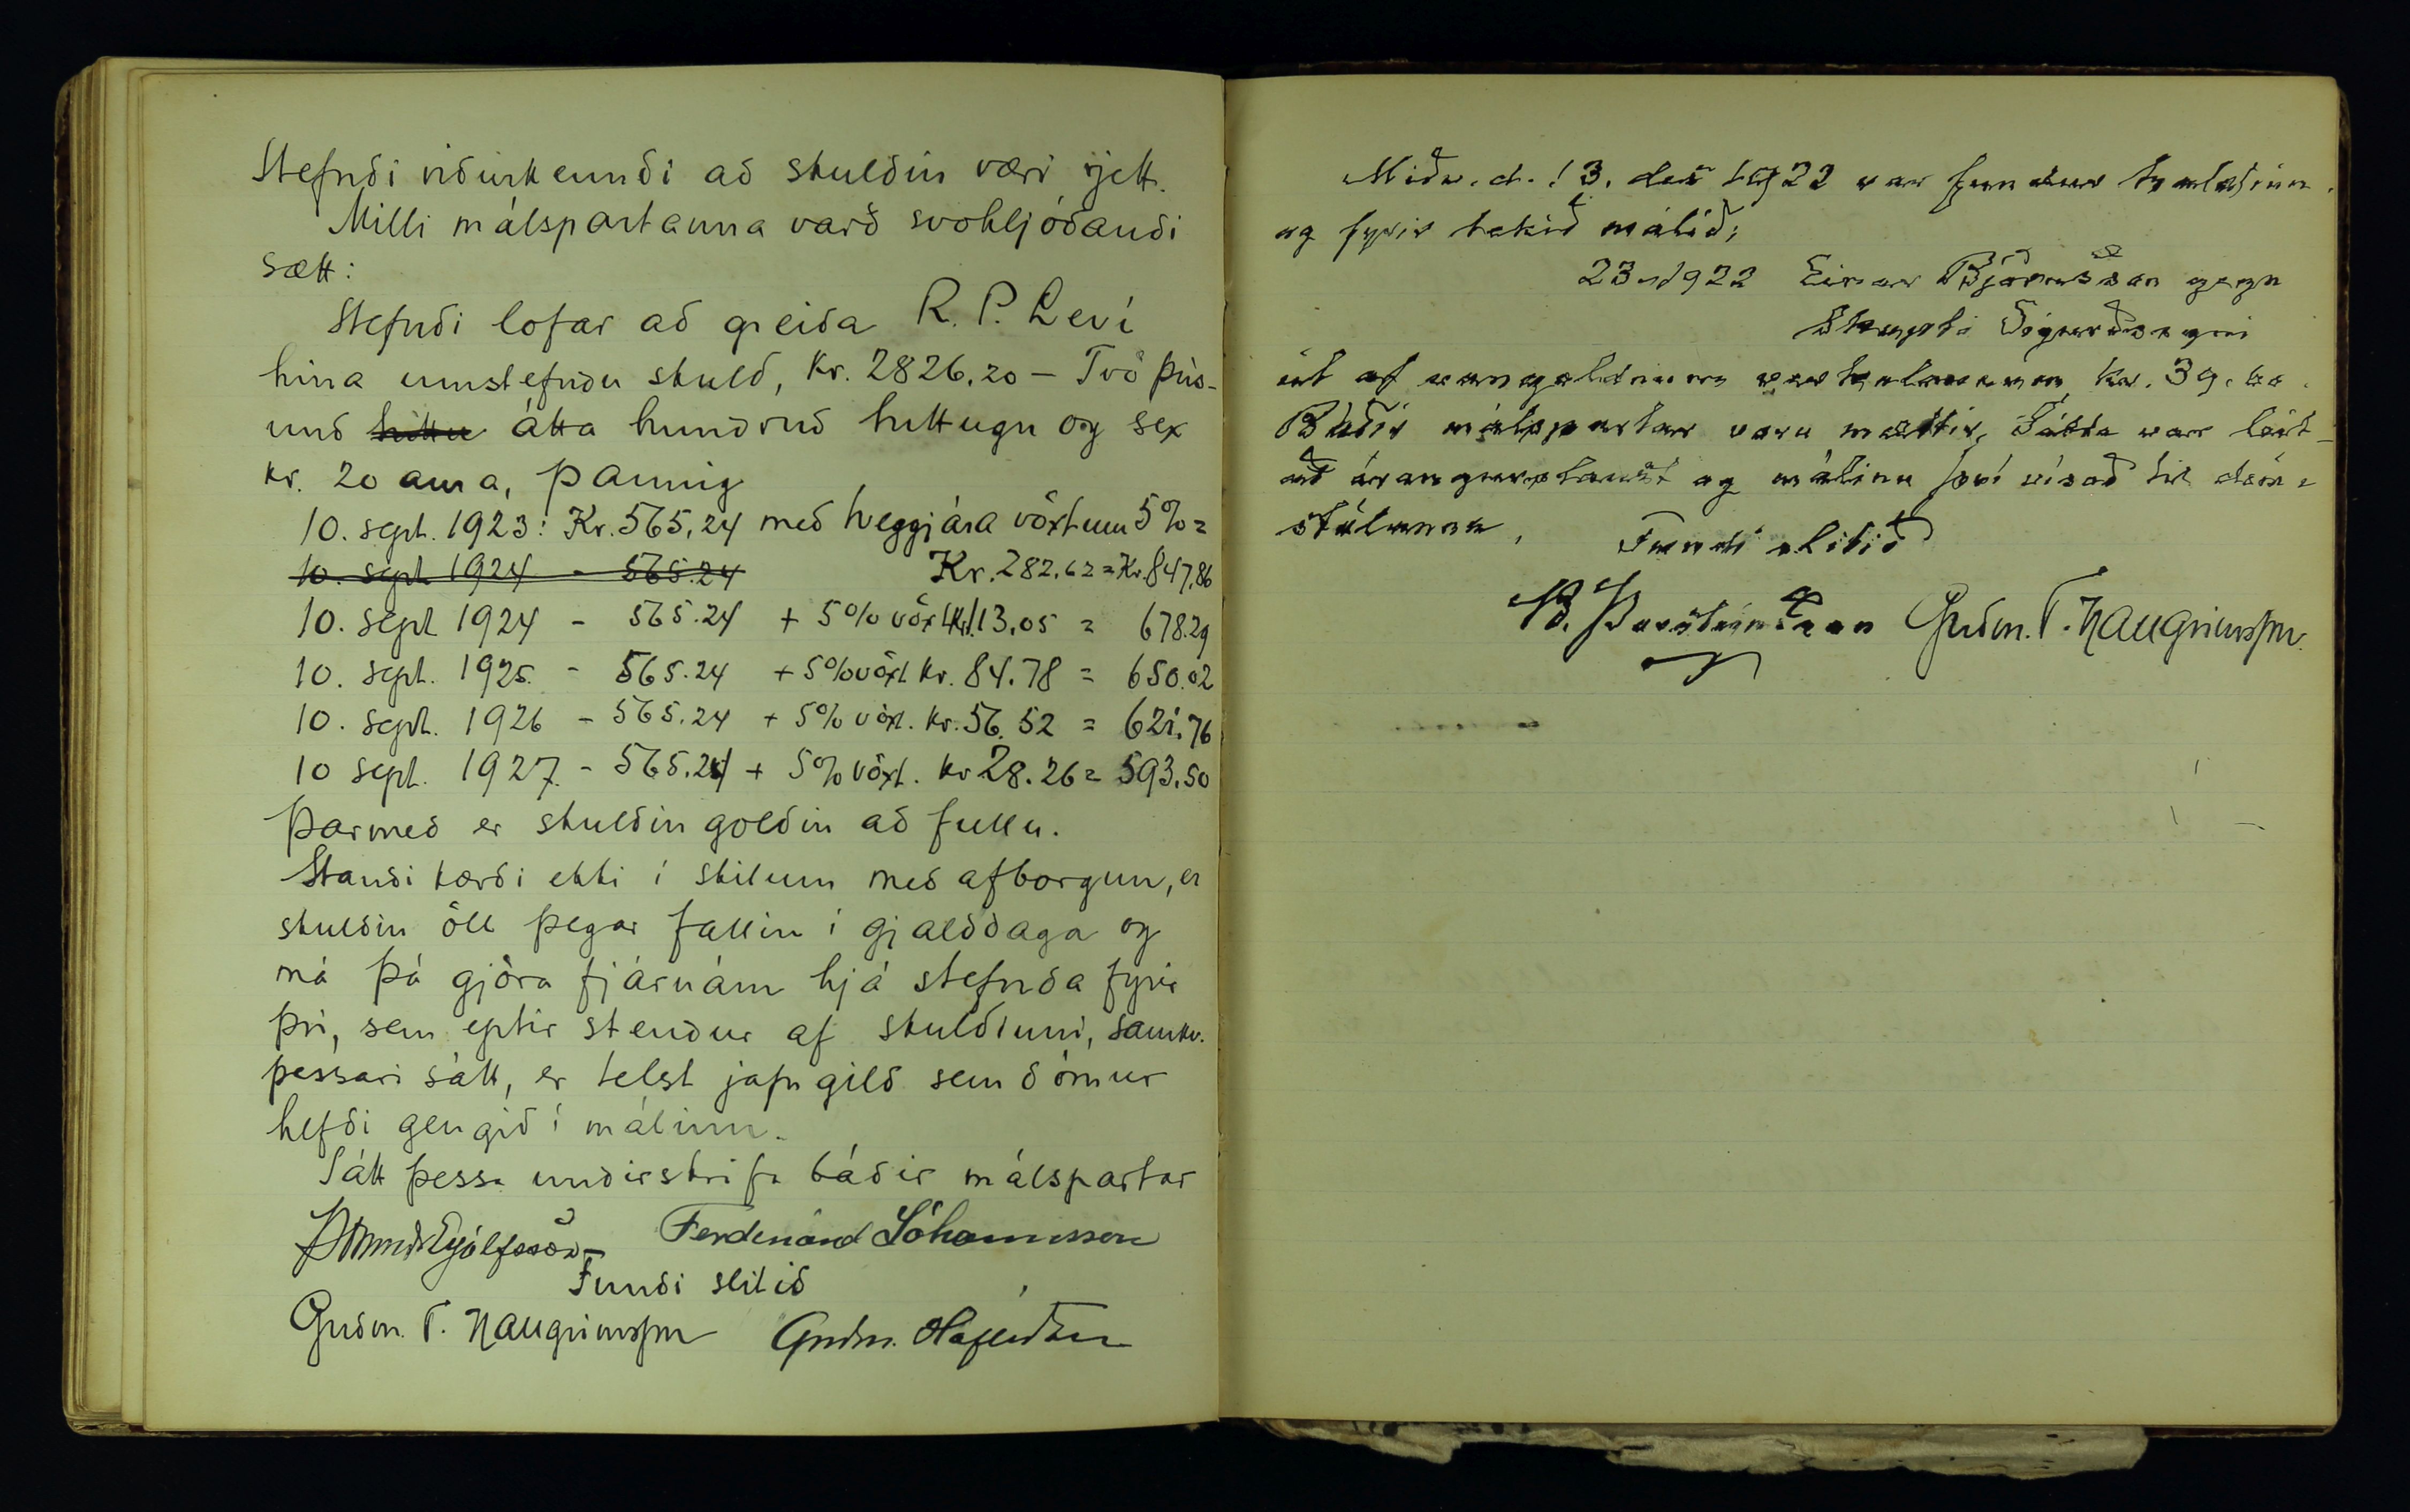 Stefndi viðurkenndi að skuldin væri rjett.
Milli málspartanna varð svohljóðandi
sætt:
Stefndi lofar að greiða R. P. Leví
hina umstefndu skuld, Kr. 2826,20 – Tvö þús-
und átta hundruð tuttugu og sex
kr. 20 aura, þannig
10. sept. 1923: Kr. 565,24 með tveggjára vöxtum 5% =
10. sept 1924 - 565.24 Kr. 282.62 = Kr. 847,86
10. sept 1924 - 565.24 + 5% vöxt Kr. 113,05 = 678.29
10. sept. 1925. - 565.24 + 5% vöxt kr. 84.78 = 650.02
10. sept. 1926 - 565.24 + 5% vöxt. kr. 56.52 = 621.76
10 sept. 1927. - 565.24 + 5% vöxt. kr 28.26 = 593.50
Þarmeð er skuldin goldin að fullu.
Standi kærði ekki í skilum með afborgun, er
skuldin öll þegar fallin í gjalddaga og
má þá gjöra fjárnám hjá stefnda fyrir
því, sem eptir stendur af skuldinni, samkv.
þessari sátt, er telst jafngild sem dómur
hefði gengið í málinu.
Sátt þessa undirskrifa báðir málspartar
Eyjólfsson Ferdenand Jóhannsson
Fundi slitið
Guðm. T. Hallgrímsson Guðm. Hafliðason
Miðv. d. 13. des 1922 var fundur haldinn
og fyrir tekið málið;
23-1922 Einar Björnsson gegn
Skapta Sigurðssyni
út af vangoldnum verkalaunum kr. 39.60.
Báðir málspartar voru mættir, Sátta var leit-
að árangurslaust og málinu því vísað til dóm-
stólanna. Fundi slitið
B. Þorsteinsson Guðm. T. Hallgrímsson